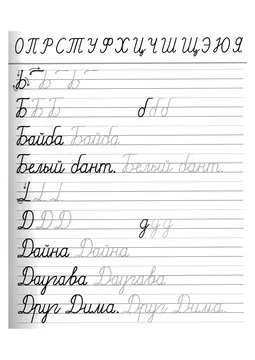 О П Р С Т У Ф Х Ц Ч Ш Щ Э Ю Я
Б
Б Б Б б б б
Байба Байба
Белый бант. Белый бант.
Д Д Д д д д
Дайна Дайна
Даугава Даугава
Друг Дима. Друг Дима.